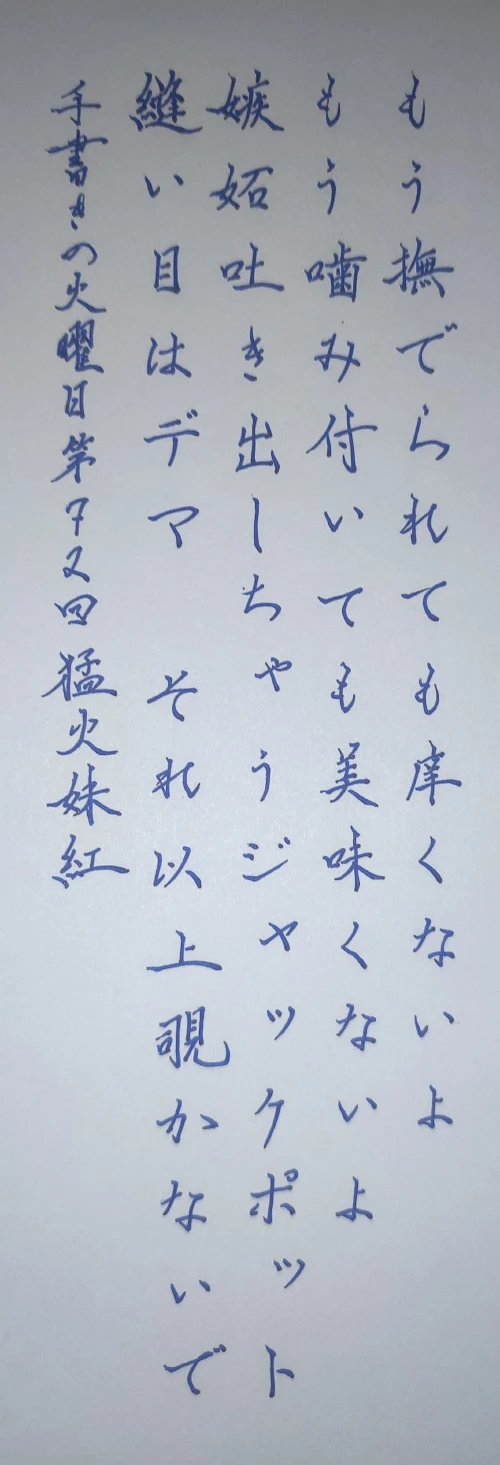 もう撫でられても痒くないよ
もう噛み付いても美味くないよ
嫉妬吐き出しちゃうジャッケポット
縫い目はデマ　それ以上覗かないで
手書きの火曜日第72回猛火妹紅